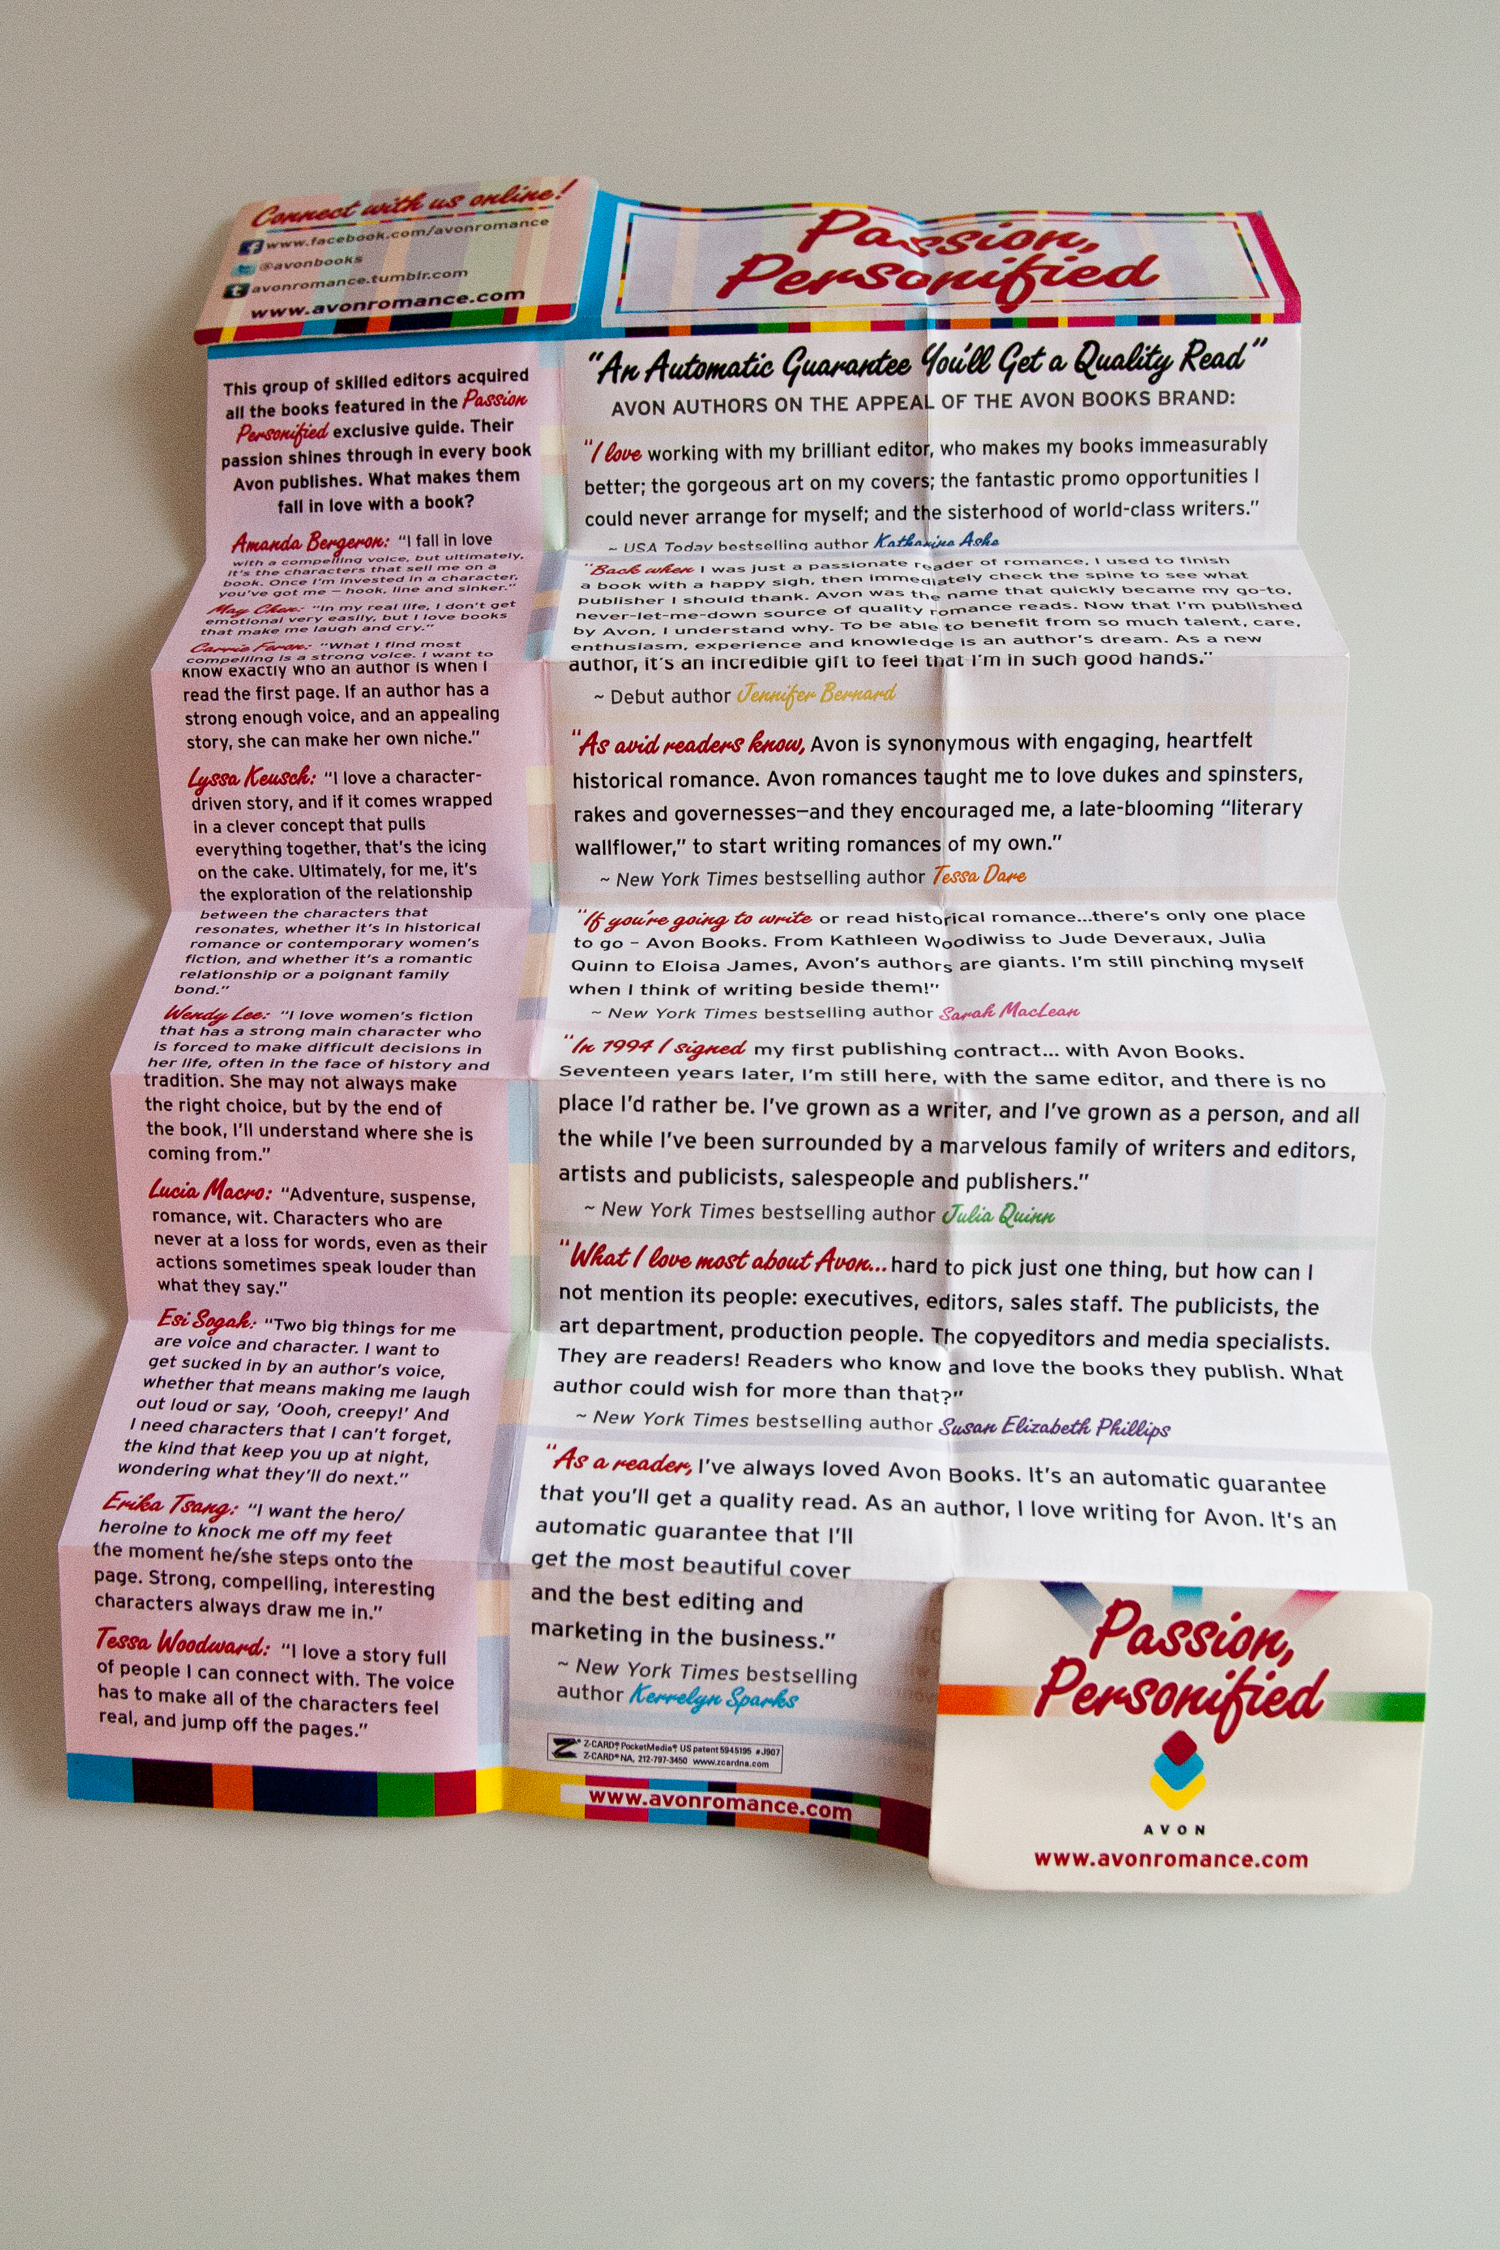 Connect with us online!
www.facebook.com/avonromance
@avonbooks
avonromance.tumblr.com
www.avonromance.com
This group of skilled editors acquired
all the books featured in the Passion
Personified exclusive guide. Their
passion shines through in every book
Avon publishes. What makes them
fall in love with a book?
Amanda Bergeron: “I fall in love
with a compelling voice, but ultimately,
it's the characters that sell me on a
book. Once I'm invested in a character,
you've got me – hook, line and sinker.”
May Chen: “In my real life, I don't get
emotional very easily, but I love books
that make me laugh and cry.”
Carrie Feron: “What I find most
compelling is a strong voice. I want to
know exactly who an author is when I
read the first page. If an author has a
strong enough voice, and an appealing
story, she can make her own niche.”
Lyssa Keusch: “I love a character-
driven story, and if it comes wrapped
in a clever concept that pulls
everything together, that's the icing
on the cake. Ultimately, for me, it's
the exploration of the relationship
between the characters that
resonates, whether it's in historical
romance or contemporary women's
fiction, and whether it's a romantic
relationship or a poignant family
bond.”
Wendy Lee: “I love women's fiction
that has a strong main character who
is forced to make difficult decisions in
her life, often in the face of history and
tradition. She may not always make
the right choice, but by the end of
the book, I'll understand where she is
coming from.”
Lucia Macro: “Adventure, suspense,
romance, wit. Characters who are
never at a loss for words, even as their
actions sometimes speak louder than
what they say.”
Esi Sogah: “Two big things for me
are voice and character. I want to
get sucked in by an author's voice,
whether that means making me laugh
out loud or say, 'Oooh, creepy!' And
I need characters that I can't forget,
the kind that keep you up at night,
wondering what they'll do next.”
Erika Tsang: “I want the hero/
heroine to knock me off my feet
the moment he/she steps onto the
page. Strong, compelling, interesting
characters always draw me in.”
Tessa Woodward: “I love a story full
of people I can connect with. The voice
has to make all of the characters feel
real, and jump off the pages.”
Passion,
Personified
“An Automatic Guarantee You'll Get a Quality Read”
AVON AUTHORS ON THE APPEAL OF THE AVON BOOKS BRAND:
“I love working with my brilliant editor, who makes my books immeasurably
better; the gorgeous art on my covers; the fantastic promo opportunities I
could never arrange for myself; and the sisterhood of world-class writers.”
~ USA Today bestselling author Katharine Ashe
“Back when I was just a passionate reader of romance, I used to finish
a book with a happy sigh, then immediately check the spine to see what
publisher I should thank. Avon was the name that quickly became my go-to,
never-let-me-down source of quality romance reads. Now that I'm published
by Avon, I understand why. To be able to benefit from so much talent, care,
enthusiasm, experience and knowledge is an author's dream. As a new
author, it's an incredible gift to feel that I'm in such good hands.”
~ Debut author Jennifer Bernard
“As avid readers know, Avon is synonymous with engaging, heartfelt
historical romance. Avon romances taught me to love dukes and spinsters,
rakes and governesses—and they encouraged me, a late-blooming “literary
wallflower,” to start writing romances of my own.”
~ New York Times bestselling author Tessa Dare
“If you're going to write or read historical romance...there's only one place
to go – Avon Books. From Kathleen Woodiwiss to Jude Deveraux, Julia
Quinn to Eloisa James, Avon's authors are giants. I'm still pinching myself
when I think of writing beside them!”
~ New York Times bestselling author Sarah MacLean
“In 1994 I signed my first publishing contract... with Avon Books.
Seventeen years later, I'm still here, with the same editor, and there is no
place I'd rather be. I've grown as a writer, and I've grown as a person, and all
the while I've been surrounded by a marvelous family of writers and editors,
artists and publicists, salespeople and publishers.”
~ New York Times bestselling author Julia Quinn
“What I love most about Avon... hard to pick just one thing, but how can I
not mention its people: executives, editors, sales staff. The publicists, the
art department, production people. The copyeditors and media specialists.
They are readers! Readers who know and love the books they publish. What
author could wish for more than that?”
~ New York Times bestselling author Susan Elizabeth Phillips
“As a reader, I've always loved Avon Books. It's an automatic guarantee
that you'll get a quality read. As an author, I love writing for Avon. It's an
automatic guarantee that I'll
get the most beautiful cover
and the best editing and
marketing in the business.”
~ New York Times bestselling
author Kerrelyn Sparks
Z-CARD® PocketMedia® US patent 5945195 #J907
Z-CARD® NA, 212-797-3450 www.zcardna.com
www.avonromance.com
Passion,
Personified
AVON
www.avonromance.com